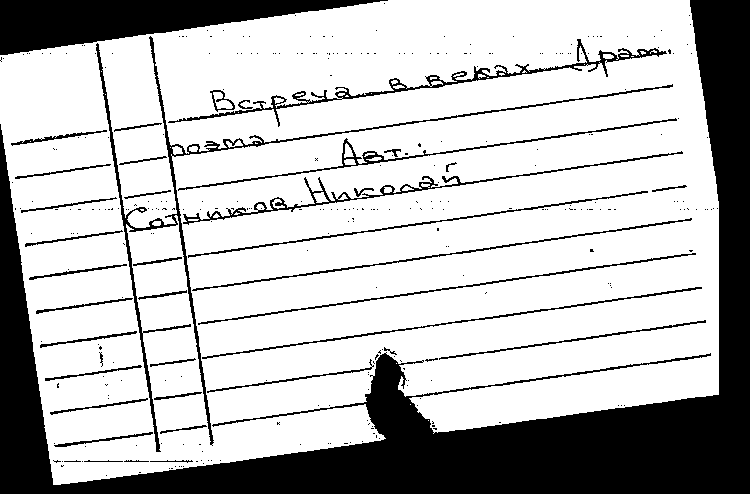 Встреча в веках Драм.
поэма.
Авт.:
Сотников, Николай